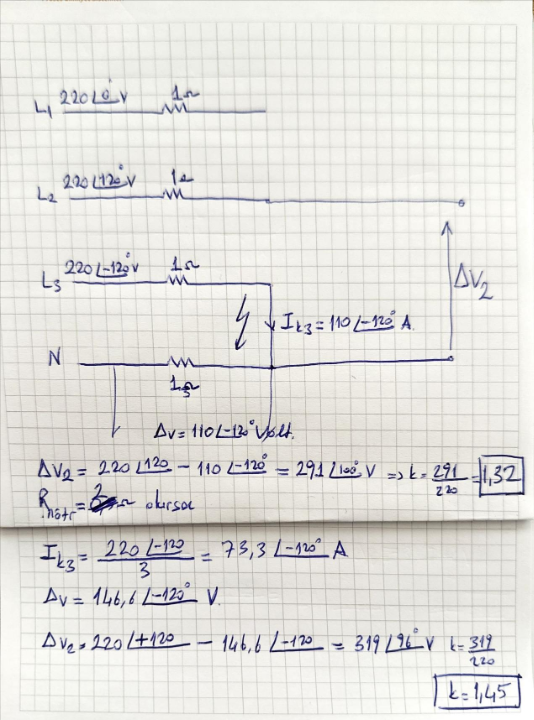 L1 220∠0° V 1Ω
L2 220∠120° V 1Ω
L3 220∠-120° V 1Ω
ΔV2
Ik3 = 110∠-120° A.
N
1Ω
ΔV = 110∠-120° Volt.
ΔV2 = 220∠120 - 110∠-120° = 291∠100° V => k = 291/220 = 1,32
Rnötr = 2Ω olursa
Ik3 = 220∠-120/3 = 73,3∠-120° A
ΔV = 146,6∠-120° V.
ΔV2 = 220∠+120 - 146,6∠-120 = 319∠96° V k = 319/220
k = 1,45